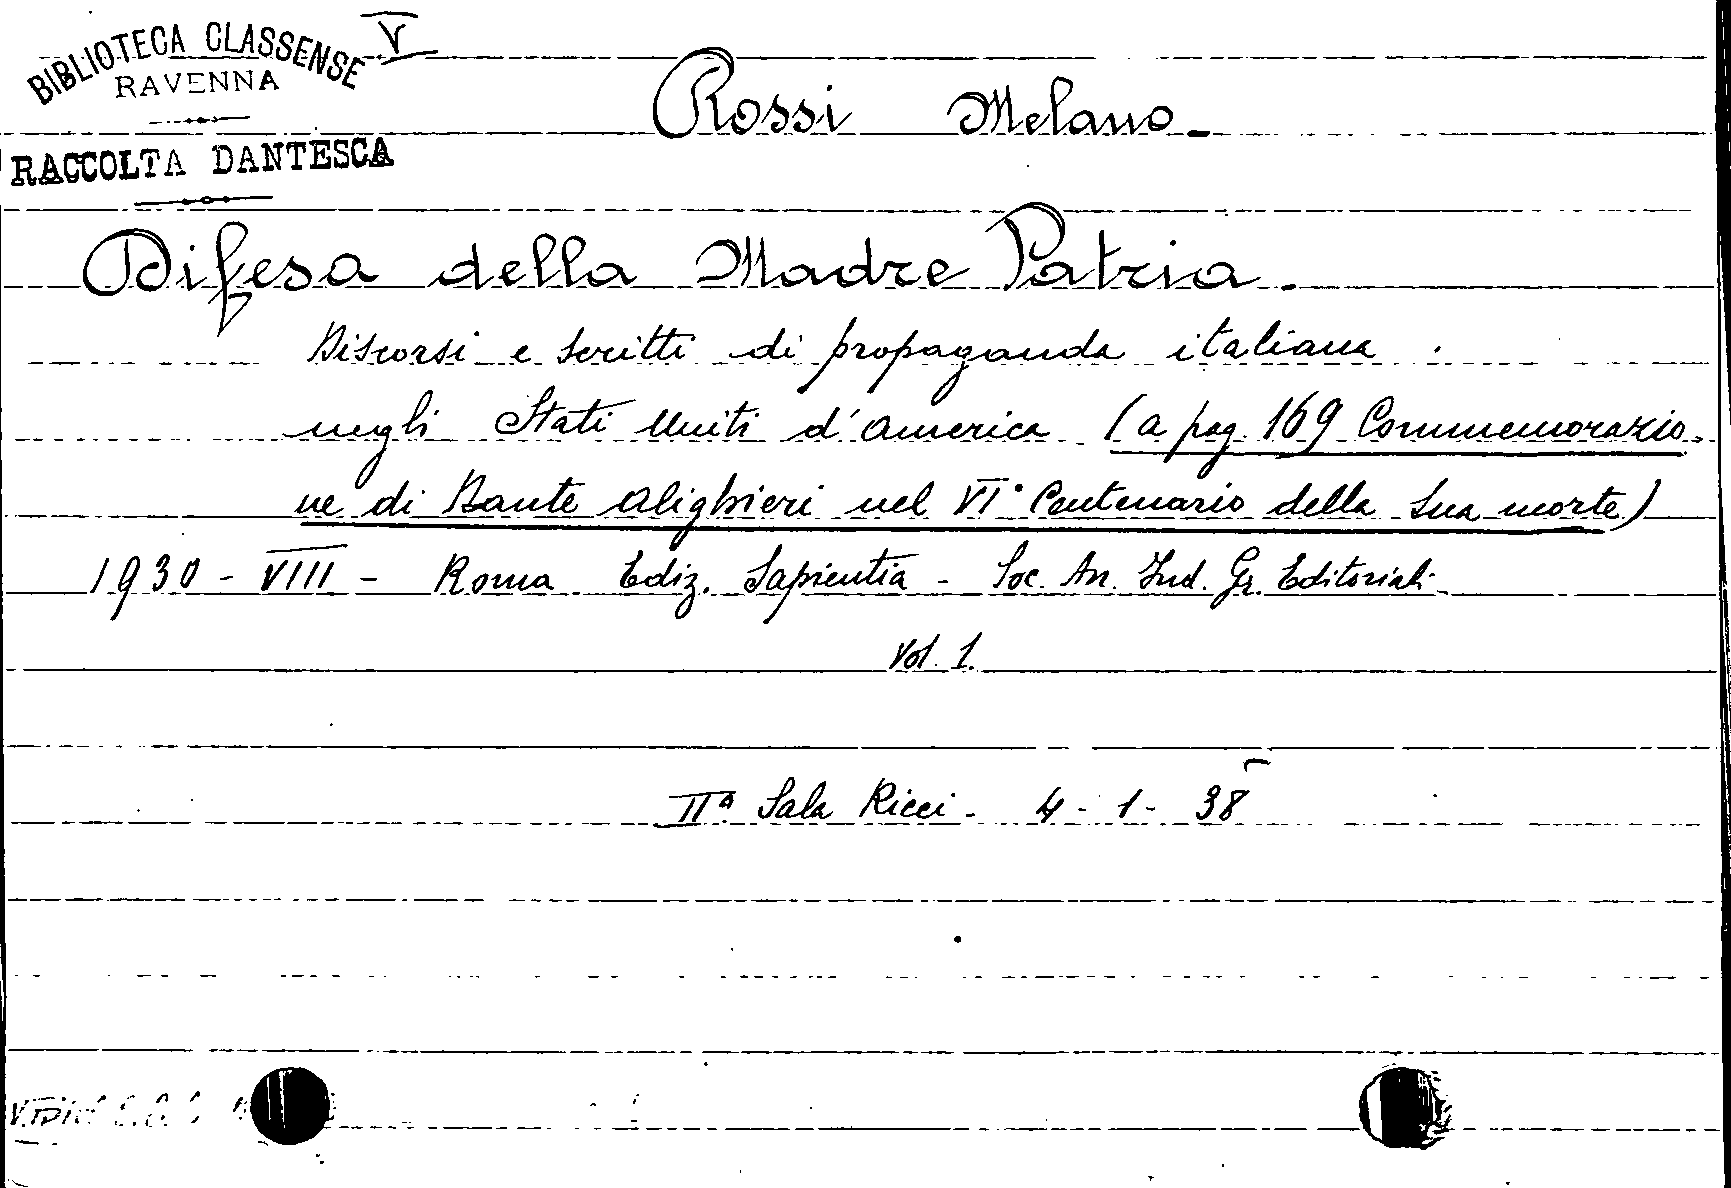 V
BIBLIOTECA CLASSENSE
RAVENNA
RACCOLTA DANTESCA
Rossi Melano
Difesa della Madre Patria.
Discorsi e scritti di propaganda italiana
negli Stati Uniti d'America (a pag. 169 Commemorazio-
ne di Dante Alighieri nel VI° Centenario della Sua morte)
1930 - VIII - Roma Ediz. Sapientia - Soc. An. Ind. Gr. Editoriali.
Vol. 1.
IIª Sala Ricci - 4 - 1 - 38